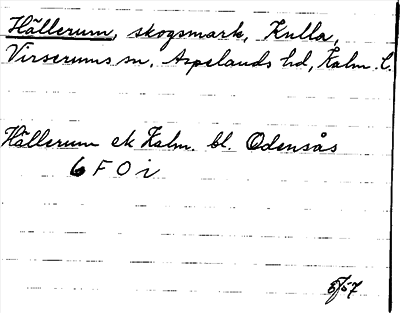 Hällerum, skogsmark, Kulla,
Virserums sn, Aspelands hd, Kalm. l.
Hällerum ek Kalm. bl. Odensås
6 F 0 i
5/57